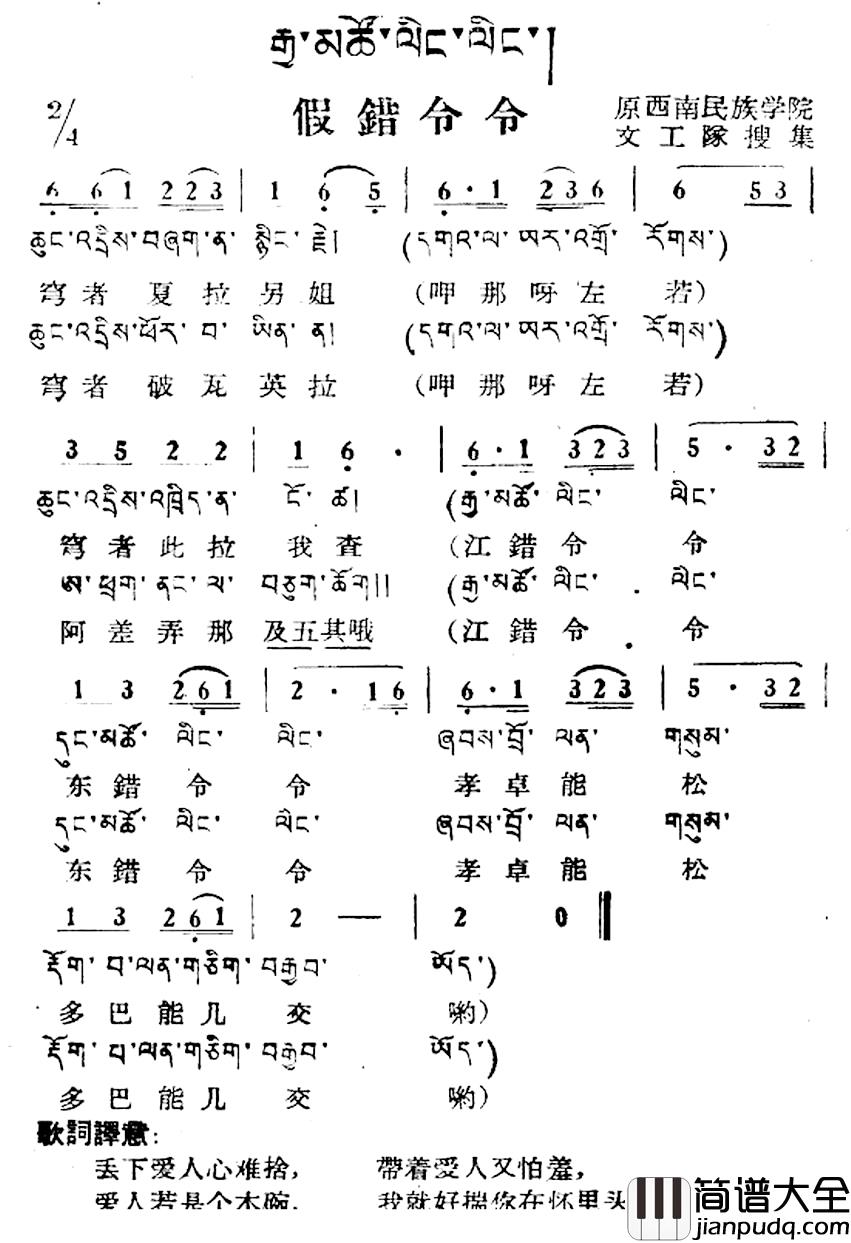 རྒྱ་མཚོ་ལིང་ལིང་།
2/4 假錯令令 原西南民族学院
文工隊搜集
6 6 1 2 2 3 | 1 6 5 | 6 · 1 2 3 6 | 6 5 3 |
ཆུང་འདྲིས་བཞག་ན་ སྙིང་རྗེ། (དགའ་ལ་ ཨར་འགྲོ་ རོགས་)
穹者 夏拉另姐 (呷那呀左 若)
ཆུང་འདྲིས་ཕོར་ བ་ ཡིན་ ན། (དགའ་ལ་ ཨར་འགྲོ་ རོགས་)
穹者 破瓦英拉 (呷那呀左 若)
3 5 2 2 | 1 6 · | 6 · 1 3 2 3 | 5 · 3 2 |
ཆུང་འདྲིས་འཁྲིད་ན་ ངོ་ ཚ། (རྒྱ་མཚོ་ ལིང་ ལིང་
穹者此拉 我查 (江錯令 令
ཨ་ཕྲག་ ནང་ ལ་ བཅུག་ཆོག།། (རྒྱ་མཚོ་ ལིང་ ལིང་
阿差弄那 及五其哦 (江錯令 令
1 3 2 6 1 | 2 · 1 6 | 6 · 1 3 2 3 | 5 · 3 2 |
དུང་མཚོ་ ལིང་ ལིང་ ཞབས་བྲོ་ ལན་ གསུམ་
东錯令 令 孝卓能 松
དུང་མཚོ་ ལིང་ ལིང་ ཞབས་བྲོ་ ལན་ གསུམ་
东錯令 令 孝卓能 松
1 3 2 6 1 | 2 — | 2 0 ||
རྡོག་ པ་ལན་གཅིག་ བརྒྱབ་ ཨོད་)
多巴能几 交 喲)
རྡོག་ པ་ལན་གཅིག་ བརྒྱབ་ ཨོད་)
多巴能几 交 喲)
歌詞譯意:
丢下爱人心难捨, 帶着愛人又怕羞,
爱人若是个木碗, 我就好揣你在怀里头
简谱大全
jianpudq.com